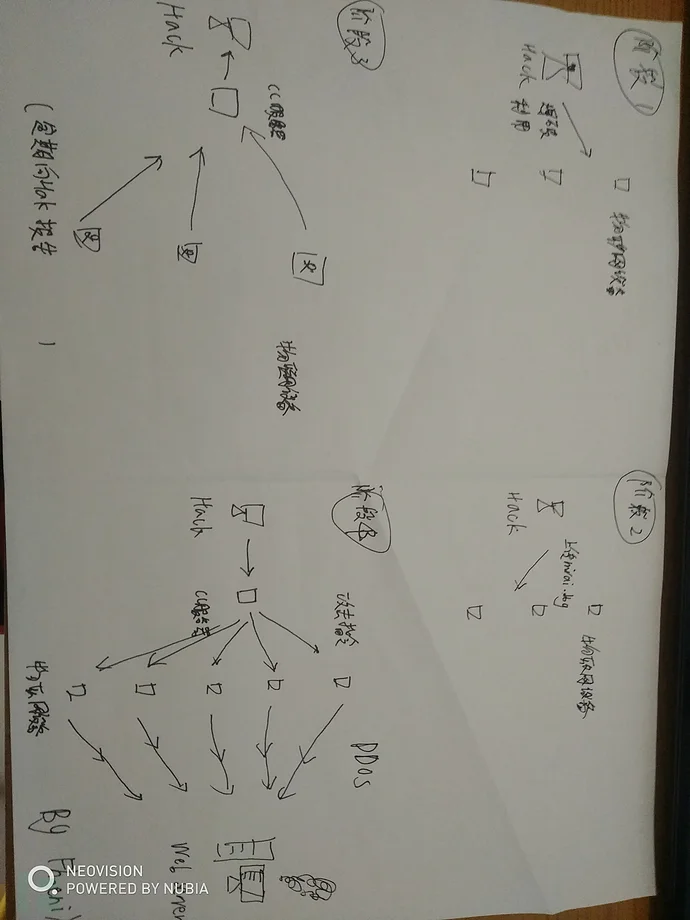 阶段1
Hack
利用
物联网设备
阶段2
Hack
上传mirai.dbg
物联网设备
阶段3
Hack
CC服务器
物联网设备
(定期向Hack报告
阶段4
Hack
CC服务器
发出指令
物联网设备
DDOS
Web
By
NEOVISION
POWERED BY NUBIA